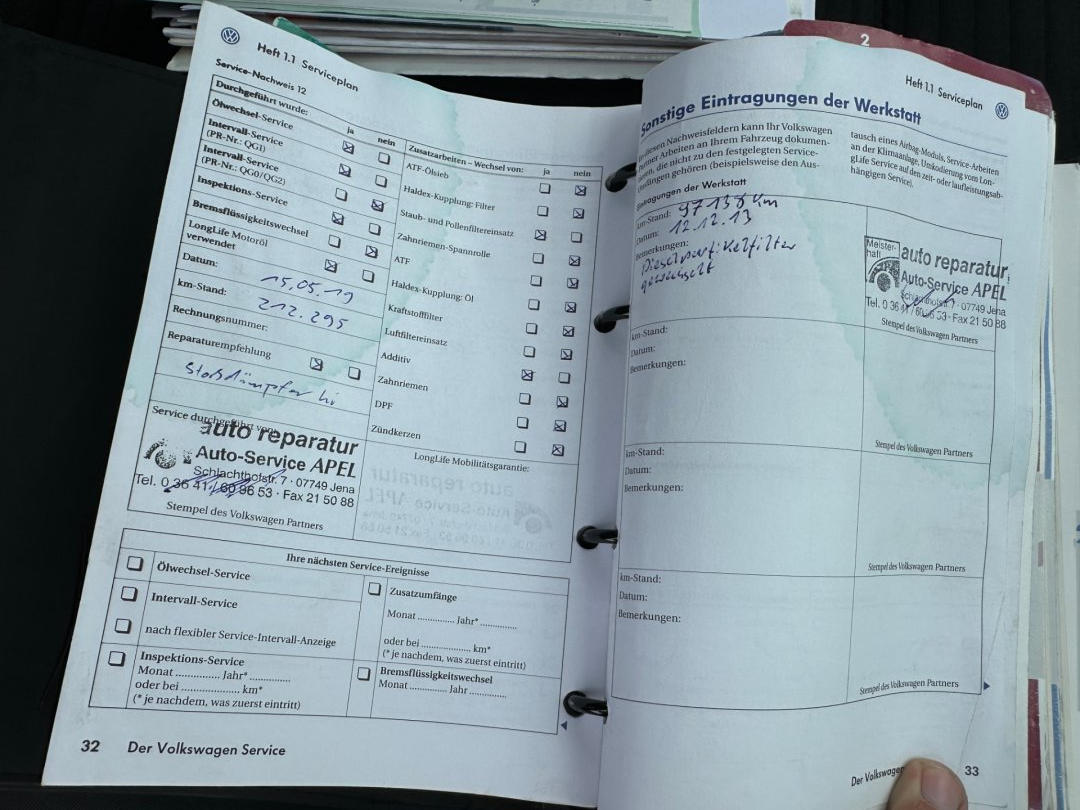 Heft 1.1 Serviceplan
Service-Nachweis 12
Durchgeführt wurde:
ja nein
Ölwechsel-Service
Intervall-Service
(PR-Nr.: QG1)
Intervall-Service
(PR-Nr.: QG0/QG2)
Inspektions-Service
Bremsflüssigkeitswechsel
LongLife Motoröl
verwendet
Datum: 15.05.19
km-Stand: 212.295
Rechnungsnummer:
Reparaturempfehlung
Stoßdämpfer hi
Service durchgeführt von:
auto reparatur
Auto-Service APEL
Schlachthofstr. 7 · 07749 Jena
Tel. 0 36 41 / 60 96 53 · Fax 21 50 88
Stempel des Volkswagen Partners
Zusatzarbeiten – Wechsel von: ja nein
ATF-Ölsieb
Haldex-Kupplung: Filter
Staub- und Pollenfiltereinsatz
Zahnriemen-Spannrolle
ATF
Haldex-Kupplung: Öl
Kraftstofffilter
Luftfiltereinsatz
Additiv
Zahnriemen
DPF
Zündkerzen
LongLife Mobilitätsgarantie:
Ihre nächsten Service-Ereignisse
Ölwechsel-Service
Intervall-Service
nach flexibler Service-Intervall-Anzeige
Inspektions-Service
Monat ............. Jahr* ..............
oder bei .................. km*
(* je nachdem, was zuerst eintritt)
Zusatzumfänge
Monat ............. Jahr* .............
oder bei ................. km*
(* je nachdem, was zuerst eintritt)
Bremsflüssigkeitswechsel
Monat ............. Jahr .............
32 Der Volkswagen Service
2
Heft 1.1 Serviceplan
Sonstige Eintragungen der Werkstatt
diesen Nachweisfeldern kann Ihr Volkswagen
Partner Arbeiten an Ihrem Fahrzeug dokumen-
die nicht zu den festgelegten Service-
umfängen gehören (beispielsweise den Aus-
tausch eines Airbag-Moduls, Service-Arbeiten
an der Klimaanlage, Umkodierung vom Lon-
gLife Service auf den zeit- oder laufleistungsab-
hängigen Service).
Eintragungen der Werkstatt
km-Stand: 97138 km
Datum: 12.12.13
Bemerkungen:
Dieselpartikelfilter
gewechselt
Meister-
haft
auto reparatur
Auto-Service APEL
Schlachthofstr. 7 · 07749 Jena
Tel. 0 36 41 / 60 96 53 · Fax 21 50 88
Stempel des Volkswagen Partners
km-Stand:
Datum:
Bemerkungen:
Stempel des Volkswagen Partners
km-Stand:
Datum:
Bemerkungen:
Stempel des Volkswagen Partners
km-Stand:
Datum:
Bemerkungen:
Stempel des Volkswagen Partners
Der Volkswagen
33